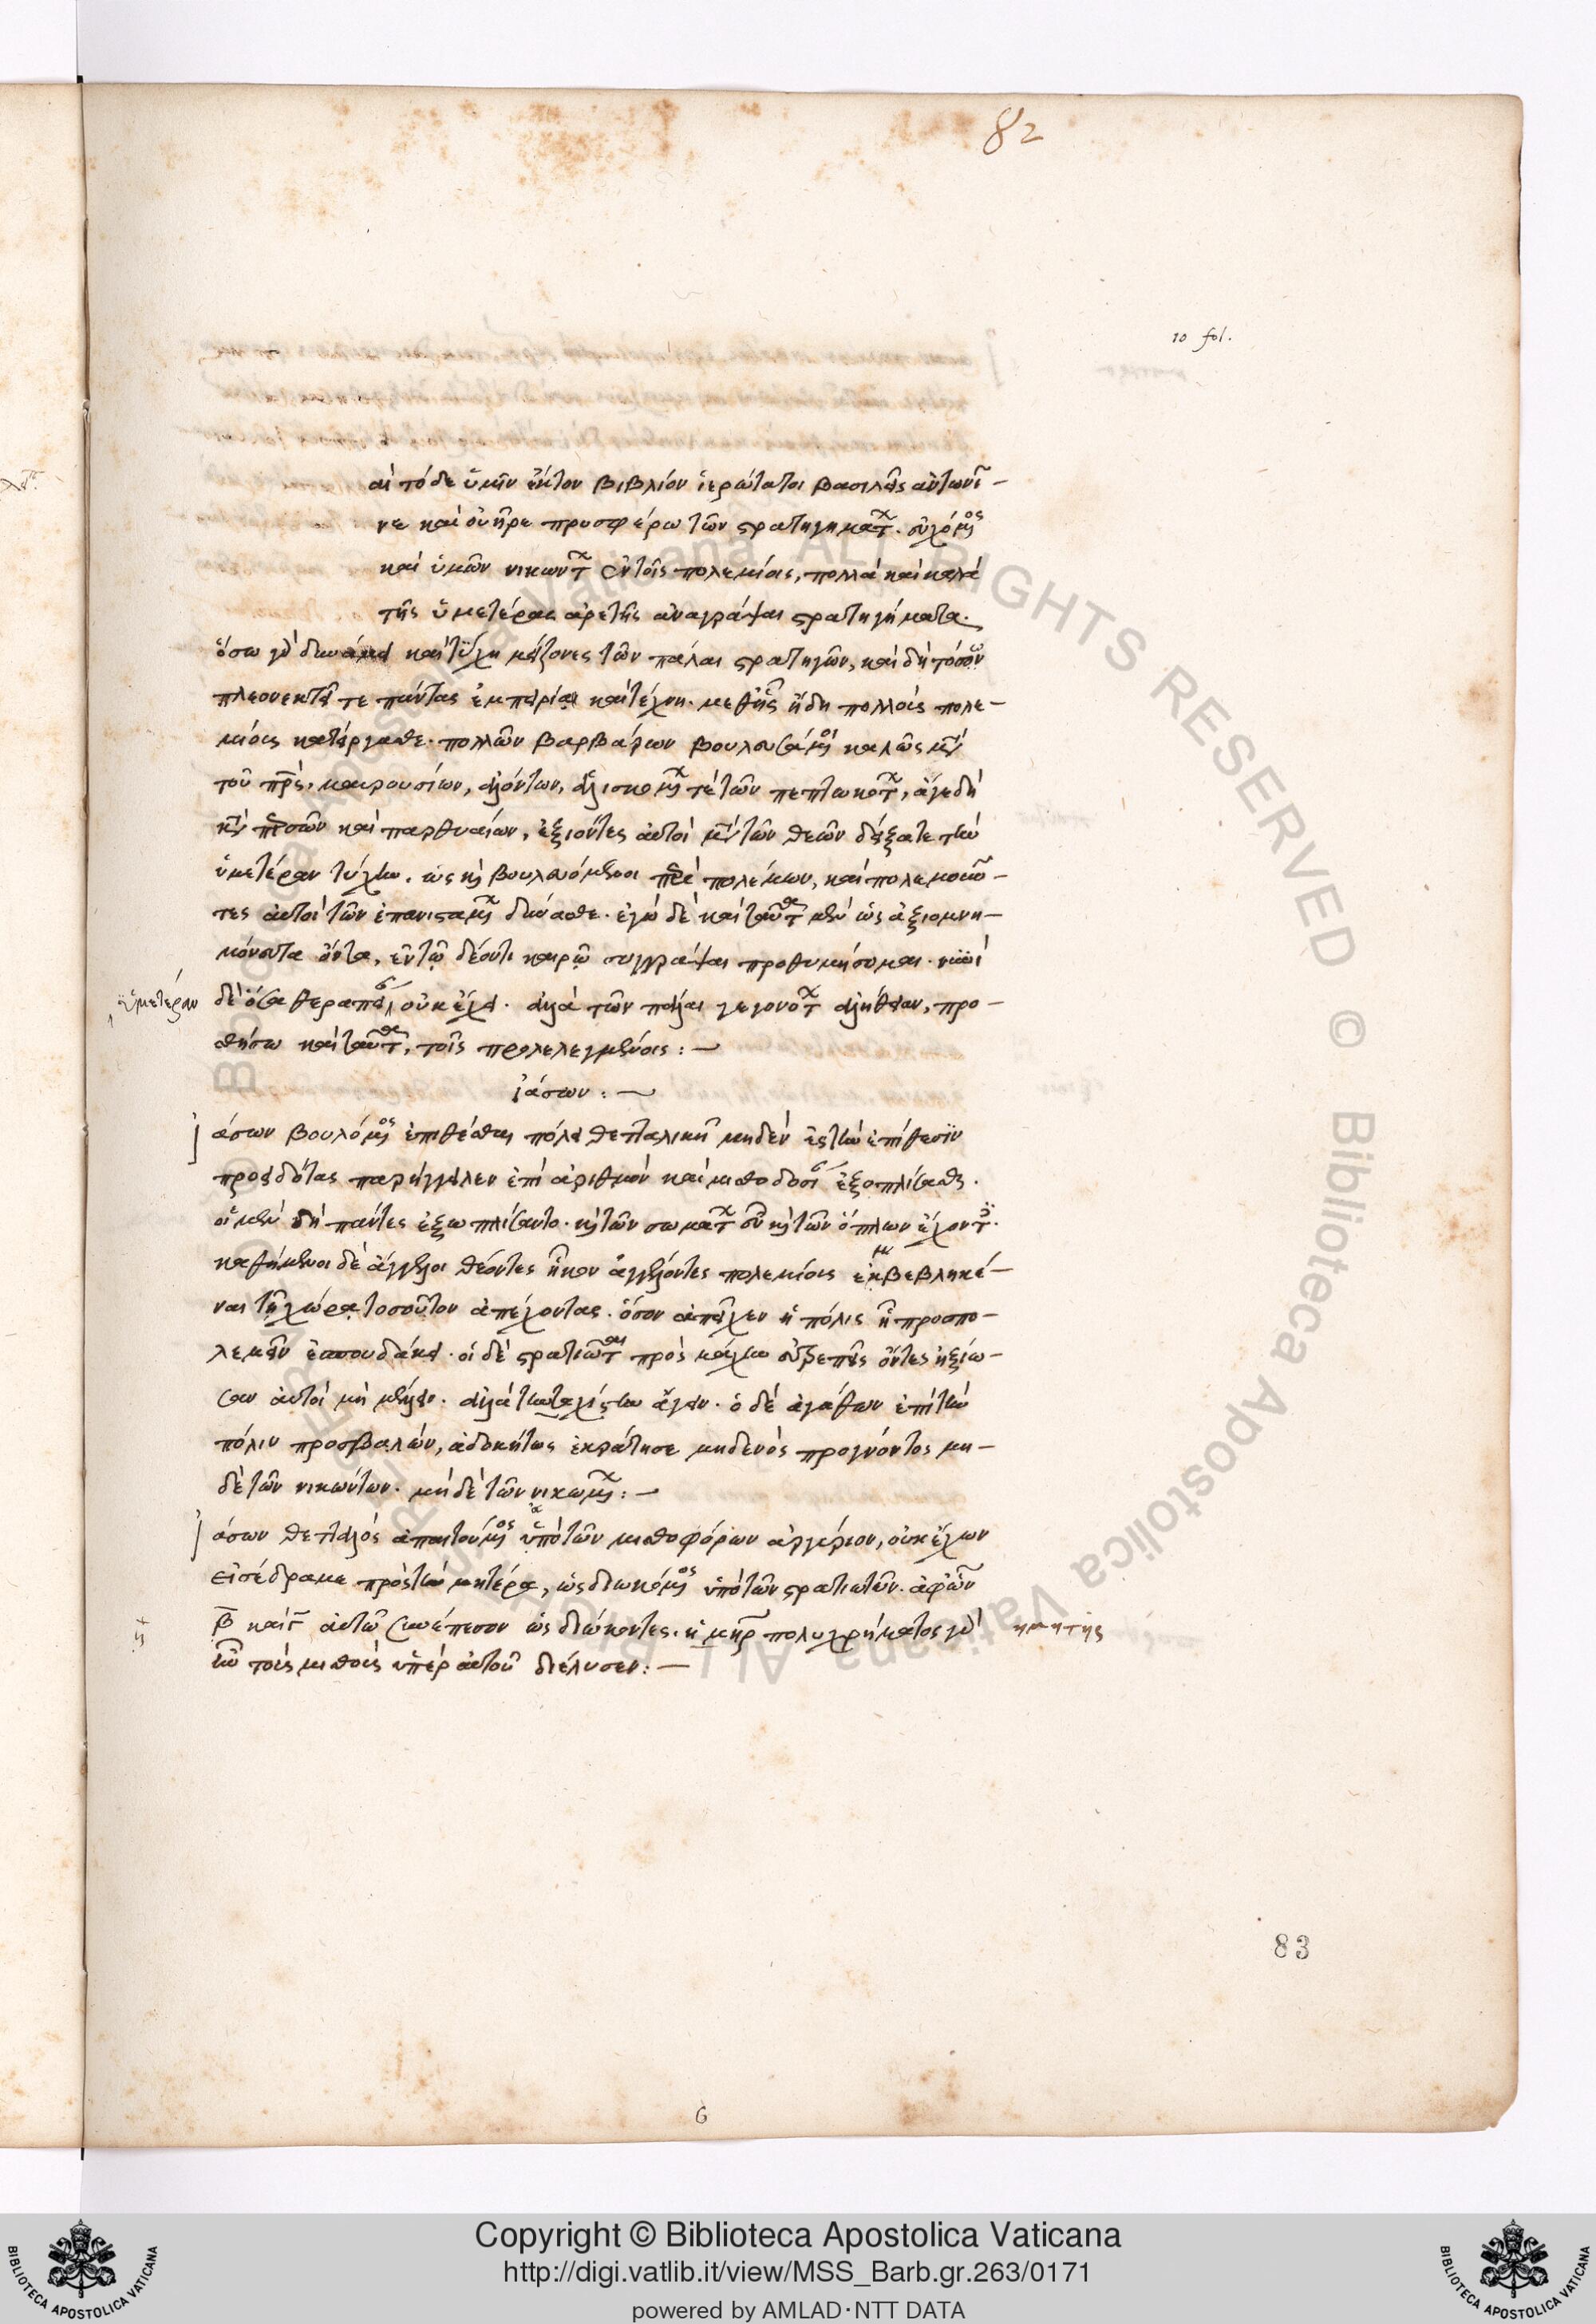 82
10 fol.
αὶ τόδε ὑμῖν ἕκτον βιβλίον ἱερώτατοι βασιλεῖς ἀντωνῖ-
νε καὶ οὐῆρε προσφέρω τῶν στρατηγημάτων. εὐχόμενος
καὶ ὑμῶν νικώντων ἐν τοῖς πολεμίοις, πολλὰ καὶ καλὰ
τῆς ὑμετέρας ἀρετῆς ἀναγράψαι στρατηγήματα.
ὅσω γὰρ δυνάμει καὶ τύχη μείζονες τῶν πάλαι στρατηγῶν, καὶ δὴ τόσον
πλεονεκτεῖτε πάντας ἐμπειρίαι καὶ τέχνη. μεθ' ἧς ἤδη πολλοὺς πολε-
μίους κατείργασθε. πολλῶν βαρβάρων βουλευσάμενοι καλῶς μετὰ
τοῦ πατρός, μαυρουσίων, ἁλόντων, ἁλισκομένων τε τῶν πεπτωκότων, ἄγε δὴ
περσῶν καὶ παρθυαίων, ἐξιόντες αὐτοὶ μετὰ τῶν θεῶν δείξατε τὴν
ὑμετέραν τύχην. ὡς καὶ βουλευόμενοι περὶ πολέμων, καὶ πολεμοῦν-
τες αὐτοὶ τῶν ἐπανισταμένων δύνασθε. ἐγὼ δὲ καὶ ταῦτα μὲν ὡς ἀξιομνη-
μόνευτα ὄντα, ἐν τῷ δέοντι καιρῷ συγγράψαι προθυμήσομαι. νυνὶ
ὑμετέραν
δὲ ὅσα θεραπείαν οὐκ ἔχει. ἀλλὰ τῶν πάλαι γεγονότων ἀλήθειαν, προ-
θήσω καὶ ταῦτα, τοῖς προλελεγμένοις:—
ἰάσων:—
ἰάσων βουλόμενος ἐπιθέσθαι πόλει θετταλικῇ μηδὲν ἐς τὴν ἐπίθεσιν
προειδότας παρήγγειλεν ἐπὶ ἀριθμὸν καὶ μισθοδοσίαν ἐξοπλίσασθαι.
οἱ μὲν δὴ πάντες ἐξωπλίσαντο. καὶ τῶν σωμάτων εὖ καὶ τῶν ὅπλων ἔχοντες.
καθήμενοι δὲ ἄγγελοι θέοντες ἧκον ἀγγέλοντες πολεμίους ἐκβεβληκέ-
ναι τῇ χώρᾳ τοσοῦτον ἀπέχοντας. ὅσον ἀπεῖχεν ἡ πόλις ἧ προσπο-
λεμεῖν ἐσπουδάκει. οἱ δὲ στρατιῶται πρὸς μάχην εὐτρεπεῖς ὄντες ἠξίω-
σαν αὐτοὶ μὴ μέλλειν. ἀλλὰ τὴν ταχίστην ἄγειν. ὁ δὲ ἀγάθων ἐπὶ τὴν
πόλιν προσβαλών, ἀδοκήτως ἐκράτησε μηδενὸς προγνόντος μη-
δὲ τῶν νικώντων. μὴ δὲ τῶν νικωμένων:—
ἰάσων θετταλὸς ἀπαιτούμενος ὑπὸ τῶν μισθοφόρων ἀργύριον, οὐκ ἔχων
εἰσέδραμε πρὸς τὴν μητέρα, ὡς διωκόμενος ὑπὸ τῶν στρατιωτῶν. ἀφ' ὧν
β καὶ γ αὐτῶ συνέπεσον ὡς διώκοντες. ἡ μήτηρ πολυχρήματος γὰρ
ἦν τοὺς μισθοὺς ὑπὲρ αὐτοῦ διέλυσεν:—
83
6
Copyright © Biblioteca Apostolica Vaticana
http://digi.vatlib.it/view/MSS_Barb.gr.263/0171
powered by AMLAD·NTT DATA
BIBLIOTECA APOSTOLICA VATICANA
BIBLIOTECA APOSTOLICA VATICANA